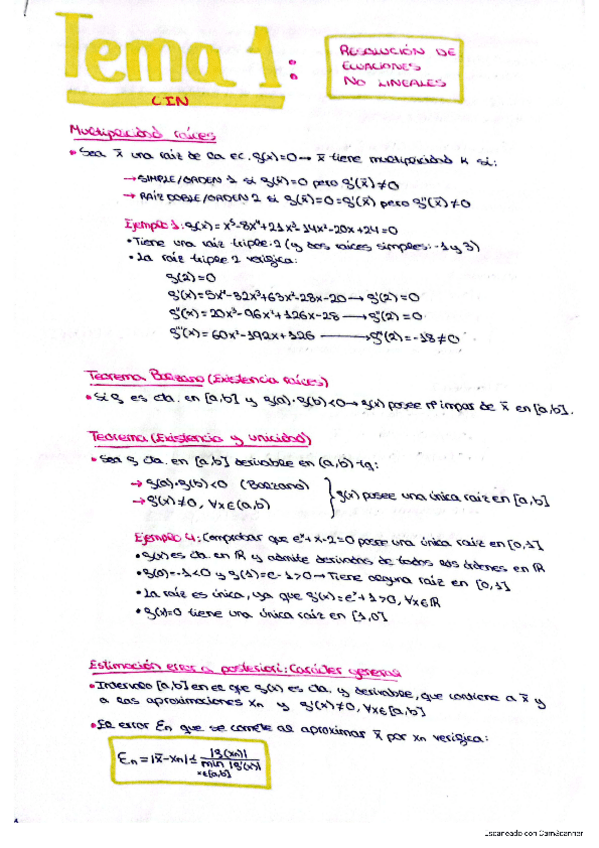 Tema 1:
RESOLUCIÓN DE
ECUACIONES
NO LINEALES
CIN
Multiplicidad raíces
• Sea x̄ una raíz de la ec. g(x)=0 → x̄ tiene multiplicidad K si:
→ SIMPLE/ORDEN 1 si g(x̄)=0 pero g'(x̄)≠0
→ RAÍZ DOBLE/ORDEN 2 si g(x̄)=0=g'(x̄) pero g''(x̄)≠0
Ejemplo 1: g(x)=x⁵-8x⁴+21x³-14x²-20x+24=0
• Tiene una raíz triple: 2 (y dos raíces simples: -1 y 3)
• La raíz triple 2 verifica:
g(2)=0
g'(x)=5x⁴-32x³+63x²-28x-20 → g'(2)=0
g''(x)=20x³-96x²+126x-28 → g''(2)=0
g'''(x)=60x²-192x+126 → g'''(2)=-18≠0
Teorema Bolzano (Existencia raíces)
• Si g es cta. en [a,b] y g(a)·g(b)<0 → g(x) posee nº impar de x̄ en [a,b].
Teorema (Existencia y unicidad)
• Sea g cta. en [a,b] derivable en (a,b) tq:
→ g(a)·g(b)<0 (Bolzano)
→ g'(x)≠0, ∀x∈(a,b)
} g(x) posee una única raíz en [a,b]
Ejemplo 4: Comprobar que eˣ+x-2=0 posee una única raíz en [0,1]
• g(x) es cta. en ℝ y admite derivadas de todos los órdenes en ℝ
• g(0)=-1<0 y g(1)=e-1>0 → Tiene alguna raíz en [0,1]
• La raíz es única, ya que g'(x)=eˣ+1>0, ∀x∈ℝ
• g(x)=0 tiene una única raíz en [1,0]
Estimación error a posteriori: Carácter general
• Intervalo [a,b] en el que g(x) es cta. y derivable, que contiene a x̄ y
a las aproximaciones xn y g'(x)≠0, ∀x∈[a,b]
• El error En que se comete al aproximar x̄ por xn verifica:
Ɛn=|x̄-xn|≤ |g(xn)| / min |g'(x)| x∈[a,b]
Escaneado con CamScanner